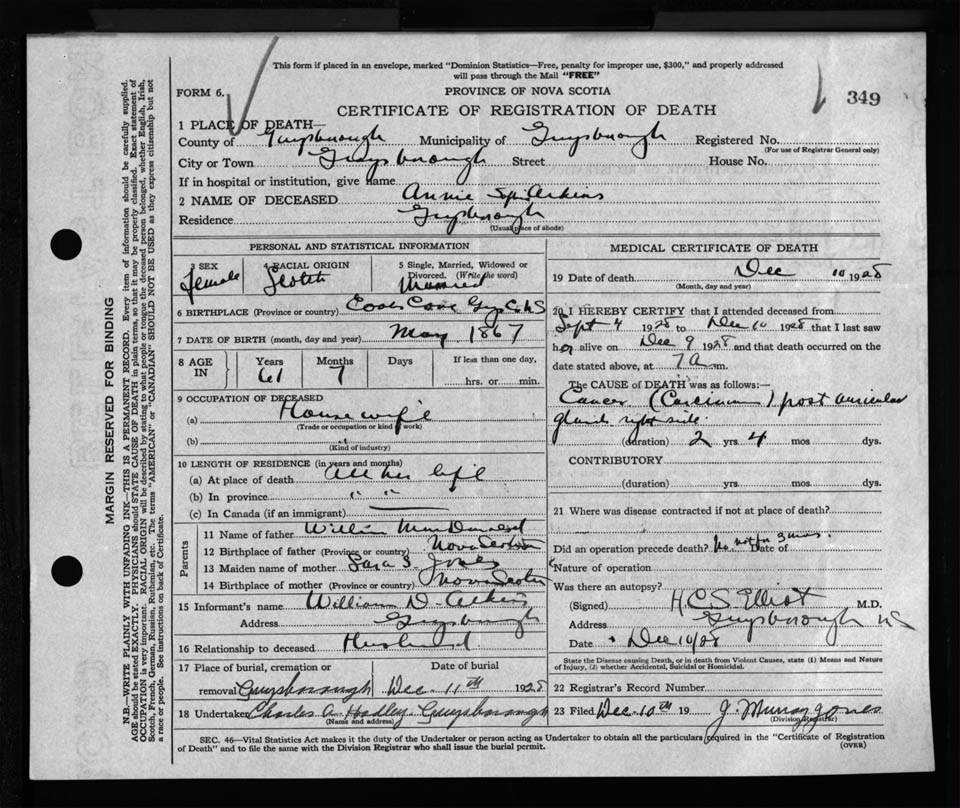 This form if placed in an envelope, marked "Dominion Statistics—Free, penalty for improper use, $300," and properly addressed
will pass through the Mail "FREE"
FORM 6.
PROVINCE OF NOVA SCOTIA
349
CERTIFICATE OF REGISTRATION OF DEATH
1 PLACE OF DEATH—
County of Guysborough Municipality of Guysborough Registered No.
(For use of Registrar General only)
City or Town Guysborough Street House No.
If in hospital or institution, give name
2 NAME OF DECEASED Annie Atkins
Residence Guysborough
(Usual place of abode)
MARGIN RESERVED FOR BINDING
N.B.—WRITE PLAINLY WITH UNFADING INK—THIS IS A PERMANENT RECORD. Every item of information should be carefully supplied.
AGE should be stated EXACTLY. PHYSICIANS should STATE CAUSE OF DEATH in plain terms, so that it may be properly classified. Exact statement of
OCCUPATION is very important. RACIAL ORIGIN will be described by stating to what people or tongue the deceased person belonged, whether English, Irish,
Scotch, French, German, Russian, Ruthenian, etc. The terms "AMERICAN" or "CANADIAN" SHOULD NOT BE USED as they express citizenship but not
a race or people. See instructions on back of Certificate.
PERSONAL AND STATISTICAL INFORMATION
3 SEX
Female
4 RACIAL ORIGIN
Scotch
5 Single, Married, Widowed or
Divorced. (Write the word)
Married
6 BIRTHPLACE (Province or country) Cooks Cove Guy Co NS
7 DATE OF BIRTH (month, day and year) May 1867
8 AGE IN
Years
61
Months
7
Days
If less than one day,
hrs. or min.
9 OCCUPATION OF DECEASED
(a) House wife
(Trade or occupation or kind of work)
(b) "
(Kind of industry)
10 LENGTH OF RESIDENCE (in years and months)
(a) At place of death All her life
(b) In province " "
(c) In Canada (if an immigrant)
Parents
11 Name of father William MacDonald
12 Birthplace of father (Province or country) Nova Scotia
13 Maiden name of mother Sara S. Jones
14 Birthplace of mother (Province or country) Nova Scotia
15 Informant's name William D. Atkins
Address Guysborough
16 Relationship to deceased Husband
17 Place of burial, cremation or Date of burial
removal Guysborough Dec. 11th 1928
18 Undertaker Charles A. Hadley Guysborough
(Name and address)
MEDICAL CERTIFICATE OF DEATH
19 Date of death Dec 10 1928
(Month, day and year)
20 I HEREBY CERTIFY that I attended deceased from
Sept 4 1928 to Dec 10 1928 that I last saw
her alive on Dec 9 1928 and that death occurred on the
date stated above, at 7 a m.
The CAUSE of DEATH was as follows:—
Cancer (Carcinoma) post auricular
glands right side.
(duration) 2 yrs. 4 mos dys.
CONTRIBUTORY
(duration) yrs. mos. dys.
21 Where was disease contracted if not at place of death?
Did an operation precede death? No not for Date of
Nature of operation
Was there an autopsy?
(Signed) H.C.S. Elliot M.D.
Address Guysborough NS
Date Dec 10/28
State the Disease causing Death, or in death from Violent Causes, state (1) Means and Nature
of Injury, (2) whether Accidental, Suicidal or Homicidal.
22 Registrar's Record Number
23 Filed Dec. 10th 19 J. Murray Jones
(Division Registrar)
SEC. 46—Vital Statistics Act makes it the duty of the Undertaker or person acting as Undertaker to obtain all the particulars required in the "Certificate of Registration
of Death" and to file the same with the Division Registrar who shall issue the burial permit.
(OVER)